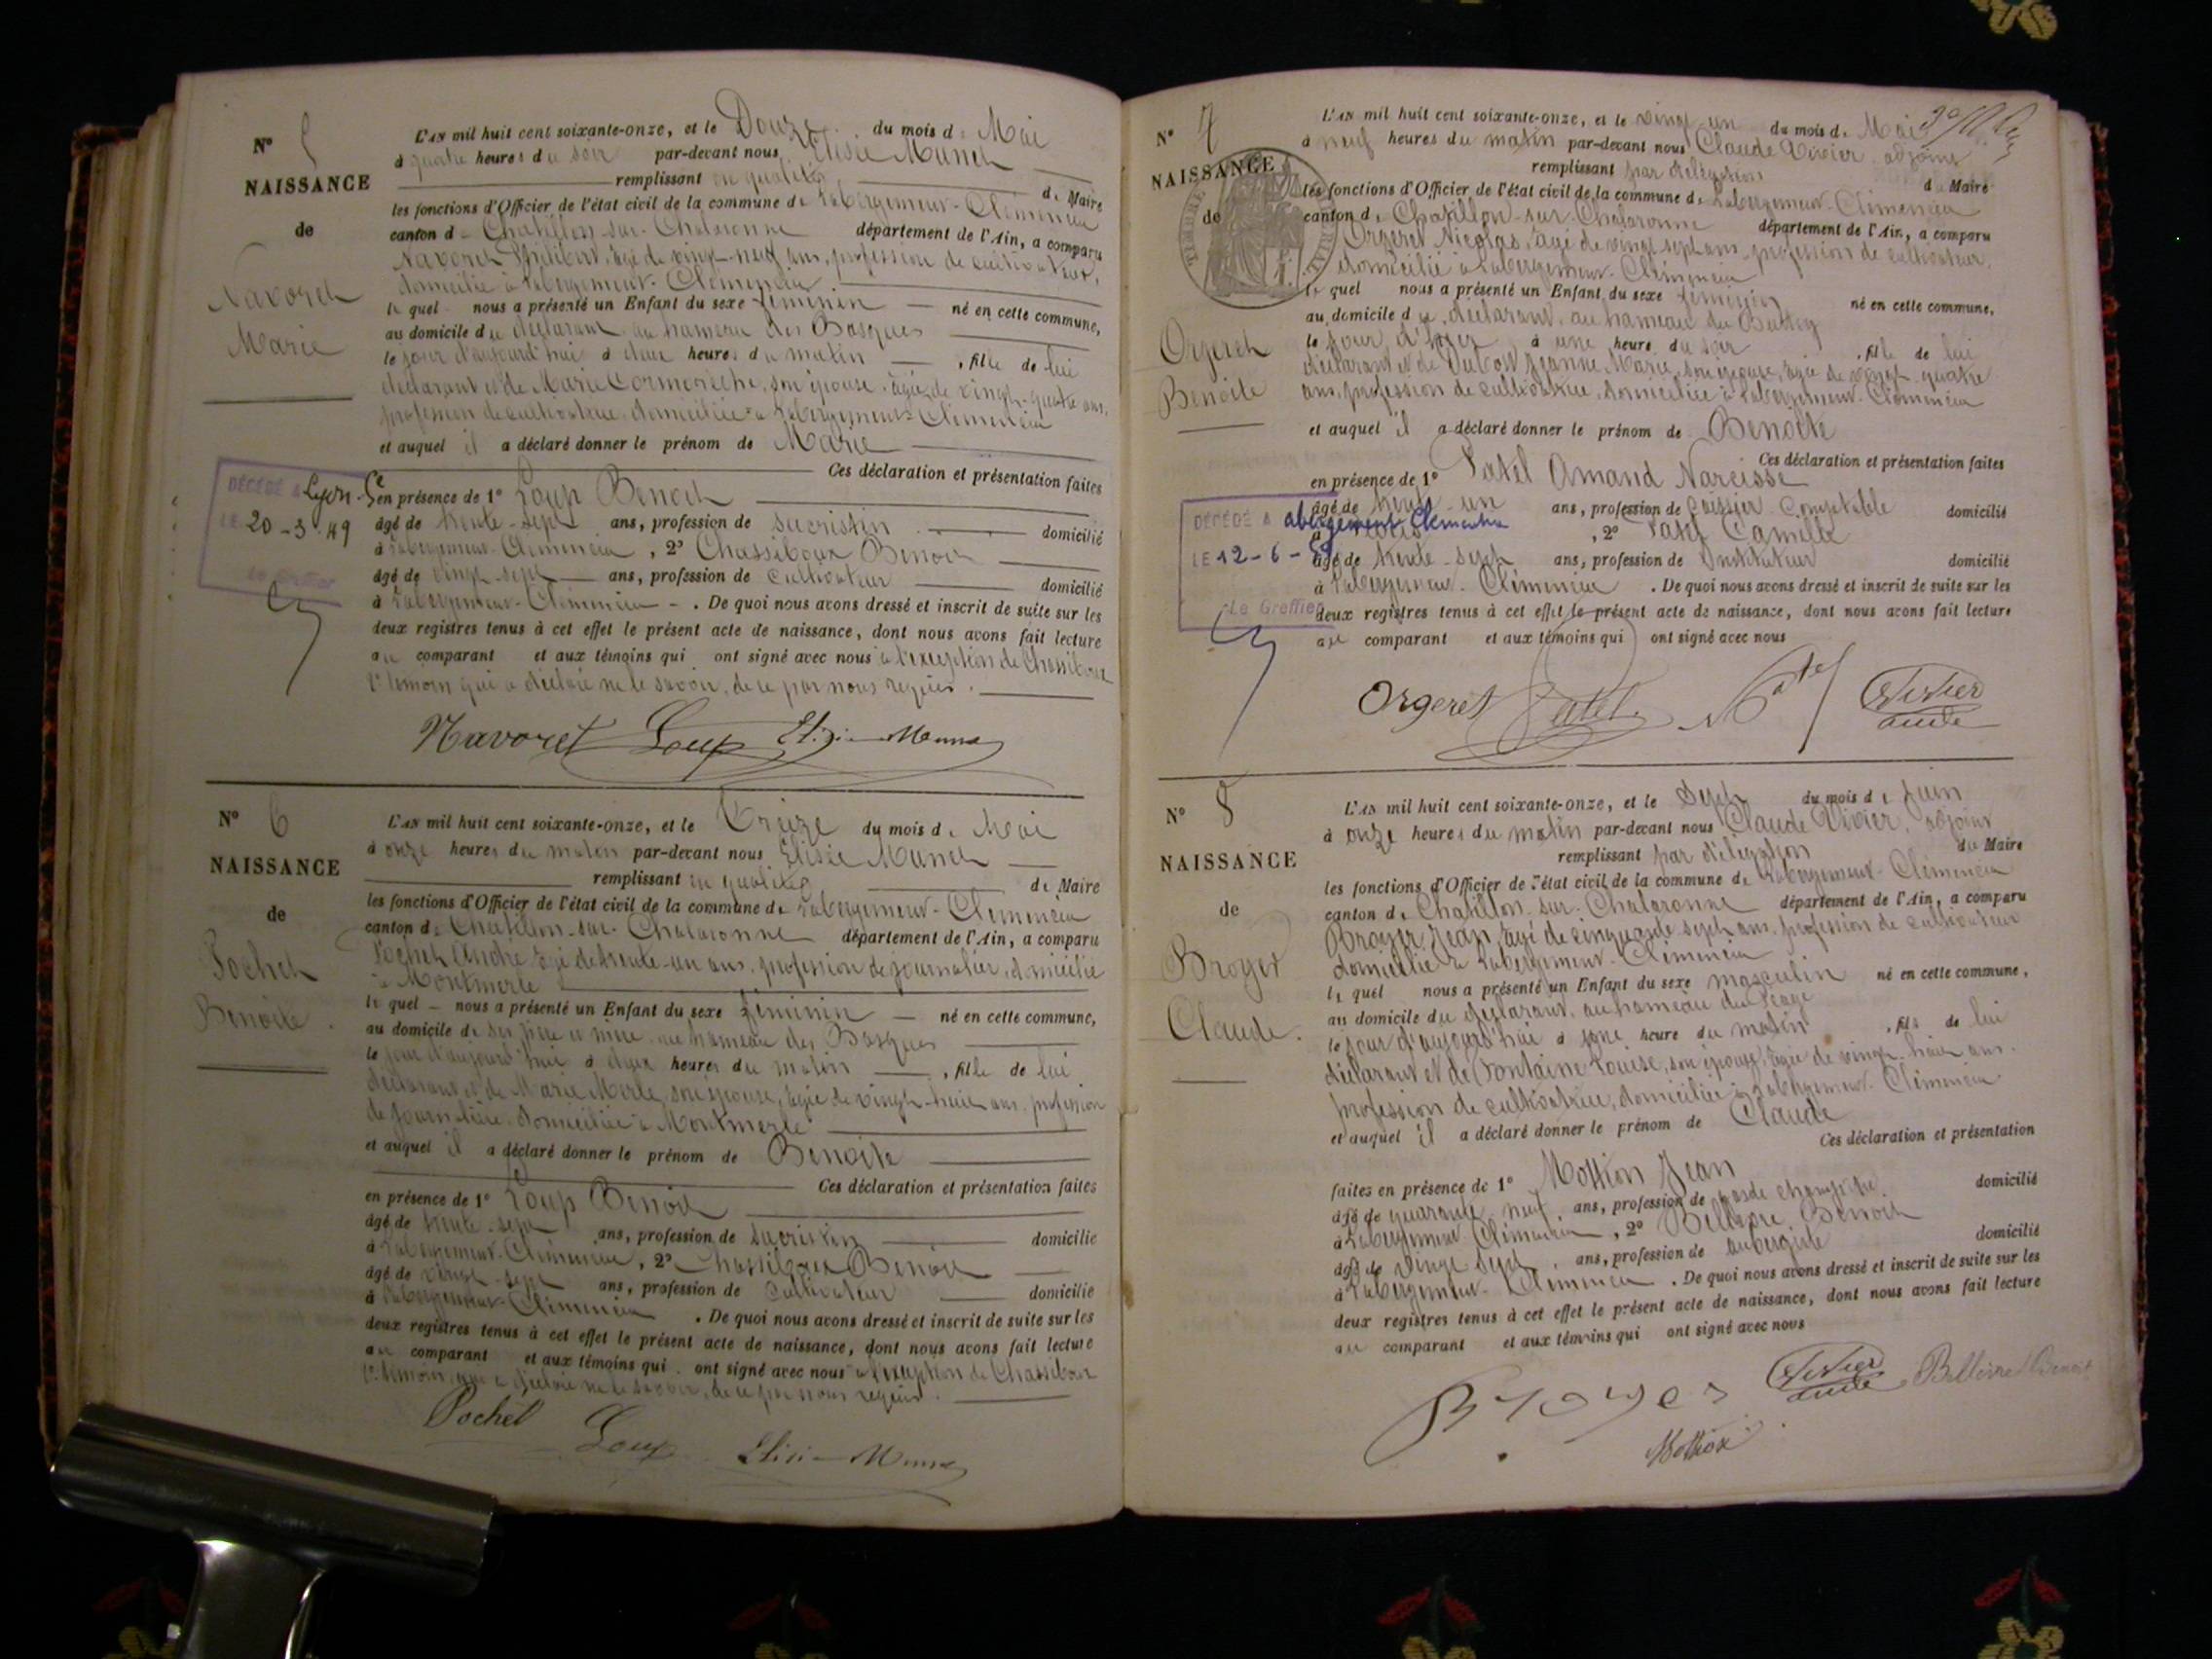 N° 5
NAISSANCE
de
Navoret
Marie
L'AN mil huit cent soixante-onze, et le Douze du mois de Mai
à quatre heures du soir par-devant nous Elisée Munet
remplissant en qualité de Maire
les fonctions d'Officier de l'état civil de la commune de Labergement-Clémencia
canton de Chatillon-sur-Chalaronne département de l'Ain, a comparu
Navoret Philibert, âgé de vingt-neuf ans, profession de cultivateur,
domicilié à Labergement-Clémencia
le quel nous a présenté un Enfant du sexe féminin né en cette commune,
au domicile du déclarant au hameau des Basques
le jour d'aujourd'hui à deux heures du matin, fille de lui
déclarant et de Marie Cormorèche, son épouse, âgée de vingt-quatre ans,
profession de cultivatrice, domiciliée à Labergement-Clémencia
et auquel il a déclaré donner le prénom de Marie
Ces déclaration et présentation faites
en présence de 1° Loup Benoit
âgé de trente-sept ans, profession de sacristin domicilié
à Labergement-Clémencia, 2° Chassiboux Benoit
âgé de vingt-sept ans, profession de cultivateur domicilié
à Labergement-Clémencia. De quoi nous avons dressé et inscrit de suite sur les
deux registres tenus à cet effet le présent acte de naissance, dont nous avons fait lecture
au comparant et aux témoins qui ont signé avec nous à l'exception de Chassiboux
2e témoin qui a déclaré ne le savoir, de ce par nous requis.
DÉCÉDÉ A Lyon 5e
LE 20-3-49
Le Greffier
Navoret Loup Elisée Munet
N° 6
NAISSANCE
de
Pochet
Benoite
L'AN mil huit cent soixante-onze, et le Treize du mois de Mai
à onze heures du matin par-devant nous Elisée Munet
remplissant en qualité de Maire
les fonctions d'Officier de l'état civil de la commune de Labergement-Clémencia
canton de Chatillon-sur-Chalaronne département de l'Ain, a comparu
Pochet André âgé de trente-un ans, profession de journalier, domicilié
à Montmerle
le quel nous a présenté un Enfant du sexe féminin né en cette commune,
au domicile de ses père et mère au hameau des Basques
le jour d'aujourd'hui à deux heures du matin, fille de lui
déclarant et de Marie Merle, son épouse, âgée de vingt-huit ans, profession
de journalière, domiciliée à Montmerle
et auquel il a déclaré donner le prénom de Benoite
Ces déclaration et présentation faites
en présence de 1° Loup Benoit
âgé de trente-sept ans, profession de sacristin domicilié
à Labergement-Clémencia, 2° Chassiboux Benoit
âgé de vingt-sept ans, profession de cultivateur domicilié
à Labergement-Clémencia. De quoi nous avons dressé et inscrit de suite sur les
deux registres tenus à cet effet le présent acte de naissance, dont nous avons fait lecture
au comparant et aux témoins qui ont signé avec nous à l'exception de Chassiboux
2e témoin, qui a déclaré ne le savoir, de ce par nous requis.
Pochet Loup Elisée Munet
N° 7
NAISSANCE
de
Orgeret
Benoite
L'AN mil huit cent soixante-onze, et le vingt-un du mois de Mai
à neuf heures du matin par-devant nous Claude Vivier adjoint
remplissant par délégation du Maire
les fonctions d'Officier de l'état civil de la commune de Labergement-Clémencia
canton de Chatillon-sur-Chalaronne département de l'Ain, a comparu
Orgeret Nicolas, âgé de vingt sept ans, profession de cultivateur,
domicilié à Labergement-Clémencia
le quel nous a présenté un Enfant du sexe féminin né en cette commune,
au domicile du déclarant, au hameau du
le jour d'hier à une heure du soir, fille de lui
déclarant et de Jeanne Marie, son épouse, âgée de vingt-quatre
ans, profession de cultivatrice, domiciliée à Labergement-Clémencia
et auquel il a déclaré donner le prénom de Benoite
Ces déclaration et présentation faites
en présence de 1° Patel Amand Narcisse
âgé de trente-un ans, profession de Caissier Comptable domicilié
à Paris, 2° Patel Camille
âgé de trente-sept ans, profession de Instituteur domicilié
à Labergement-Clémencia. De quoi nous avons dressé et inscrit de suite sur les
deux registres tenus à cet effet le présent acte de naissance, dont nous avons fait lecture
au comparant et aux témoins qui ont signé avec nous
DÉCÉDÉ A abergement Clémentia
LE 12-6-
Le Greffier
Orgeret Patel Patel Vivier
Claude
N° 8
NAISSANCE
de
Broyer
Claude.
L'AN mil huit cent soixante-onze, et le Sept du mois de Juin
à onze heures du matin par-devant nous Claude Vivier, adjoint
remplissant par délégation du Maire
les fonctions d'Officier de l'état civil de la commune de Labergement-Clémencia
canton de Chatillon-sur-Chalaronne département de l'Ain, a comparu
Broyer Jean, âgé de cinquante sept ans, profession de cultivateur
domicilié à Labergement-Clémencia
le quel nous a présenté un Enfant du sexe masculin né en cette commune,
au domicile du déclarant, au hameau du Péage
le jour d'aujourd'hui à une heure du matin, fils de lui
déclarant et de Fontaine Louise, son épouse, âgée de vingt-huit ans,
profession de cultivatrice, domiciliée à Labergement-Clémencia
et auquel il a déclaré donner le prénom de Claude
Ces déclaration et présentation
faites en présence de 1° Mottion Jean
âgé de quarante-neuf ans, profession de garde champêtre domicilié
à Labergement-Clémencia, 2° Benoit
âgé de vingt sept ans, profession de aubergiste domicilié
à Labergement-Clémencia. De quoi nous avons dressé et inscrit de suite sur les
deux registres tenus à cet effet le présent acte de naissance, dont nous avons fait lecture
au comparant et aux témoins qui ont signé avec nous
Broyer Vivier Benoit
Claude
Mottion